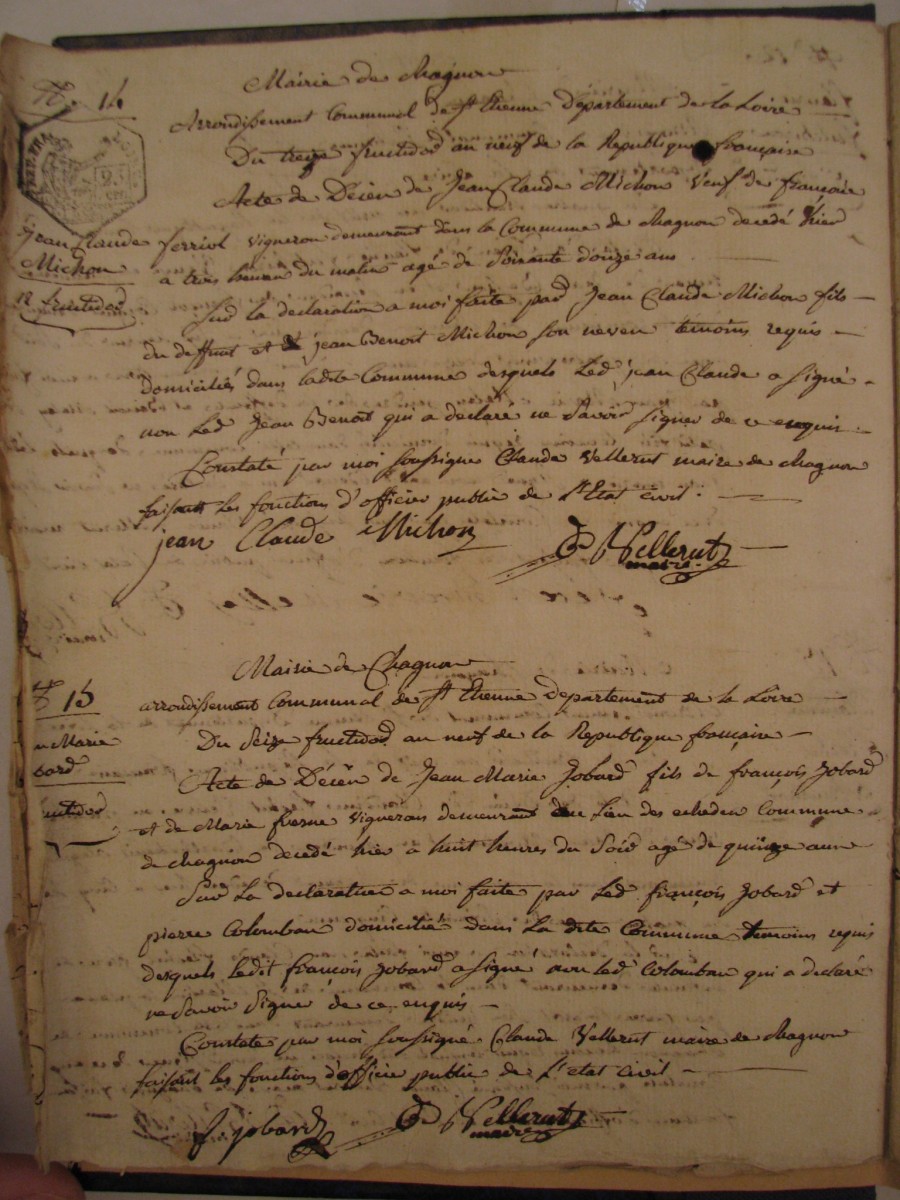 N.º 14
Mairie de Chagnon
Arrondissement Communal de St Etienne Departement de la Loire
Du treize fructidor an neuf de la Republique française
Acte de Décès de Jean Claude Michon veuf de françoise
ferriol vigneron demeurant dans la Commune de Chagnon decedé hier
a trois heures du matin agé de Soixante douze ans
Jean Claude
Michon
12 fructidor
Sur la declaration a moi faite par Jean Claude Michon fils
du deffunt et jean Benoit Michon son neveu temoins requis
Domiciliés dans ladite Commune desquels led. jean Claude a signé
non led. Jean Benoit qui a declaré ne Savoir signer de ce enquis
Constaté par moi soussigné Claude Vellerut maire de Chagnon
faisant les fonctions d'officier public de l'Etat civil
jean Claude Michon
Vellerut
maire
15
Mairie de Chagnon
arrondissement Communal de St Etienne Departement de la Loire
Du Seize fructidor an neuf de la Republique française
Marie
bard
uctidor
Acte de Décès de Jean Marie Jobard fils de françois Jobard
et de Marie fresne vignerons demeurant au Lieu des Commune
de Chagnon decedé hier a huit heures du Soir agé de quinze ans
Sur la declaration a moi faite par led. françois Jobard et
pierre Colomban domicilié dans la dite Commune temoins requis
desquels ledit françois Jobard a signé non led. Colomban qui a declaré
ne Savoir Signer de ce enquis
Constaté par moi soussigné Claude Vellerut maire de Chagnon
faisant les fonctions d'officier public de l'etat civil
f. jobard
Vellerut
maire